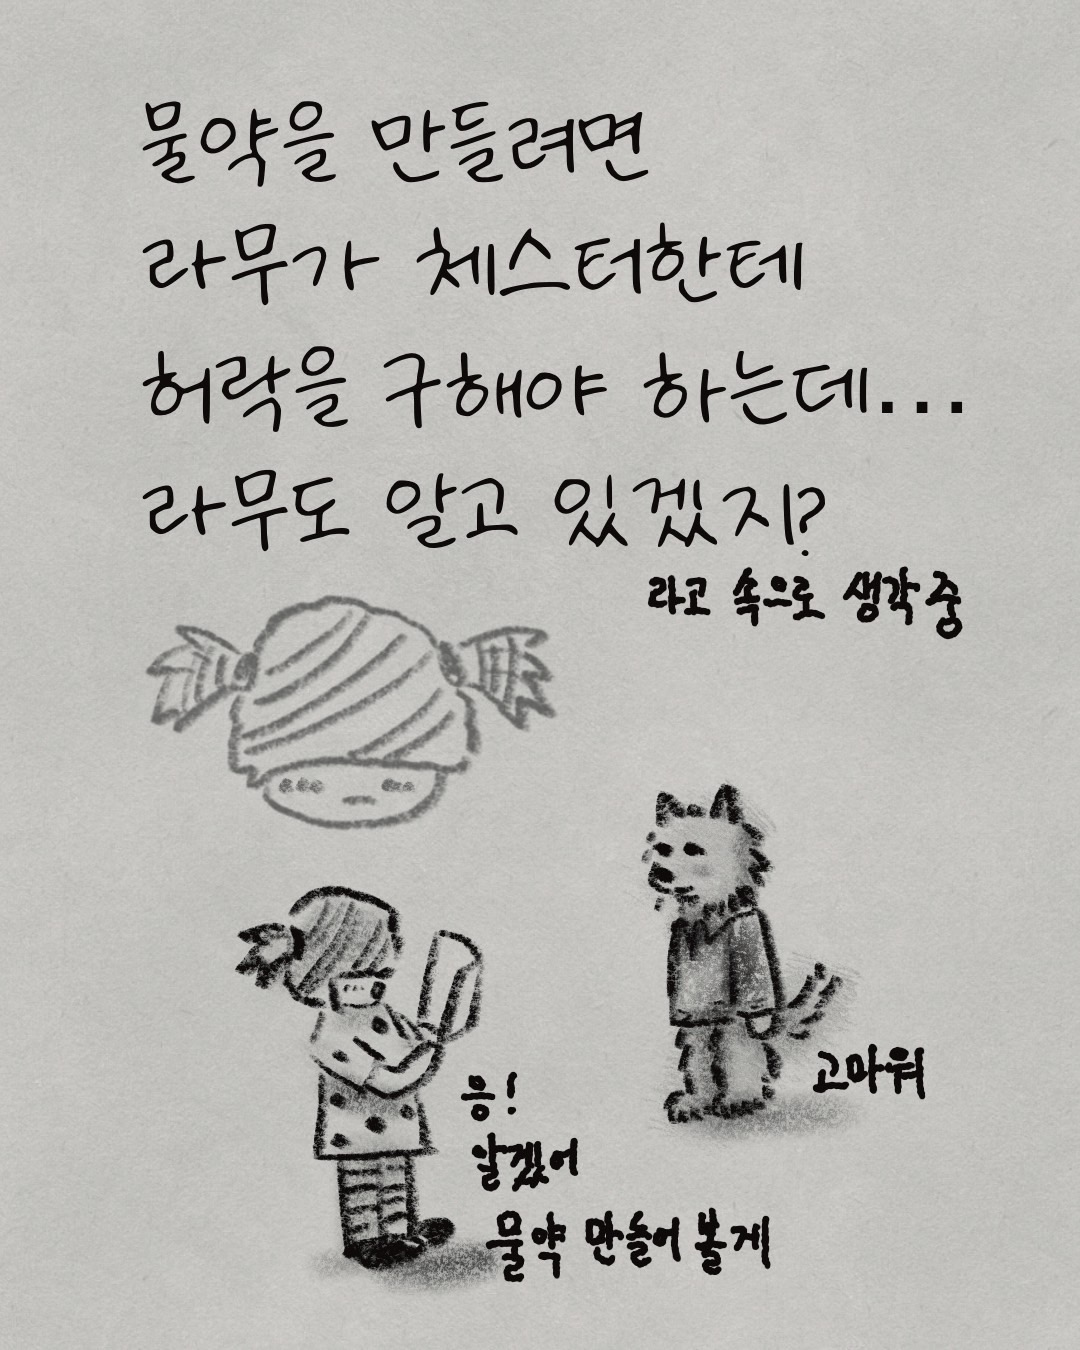 물약을 만들려면
라무가 체스터한테
허락을 구해야 하는데...
라무도 알고 있겠지?
라고 속으로 생각 중
고마워
응!
알겠어
물약 만들어 볼게